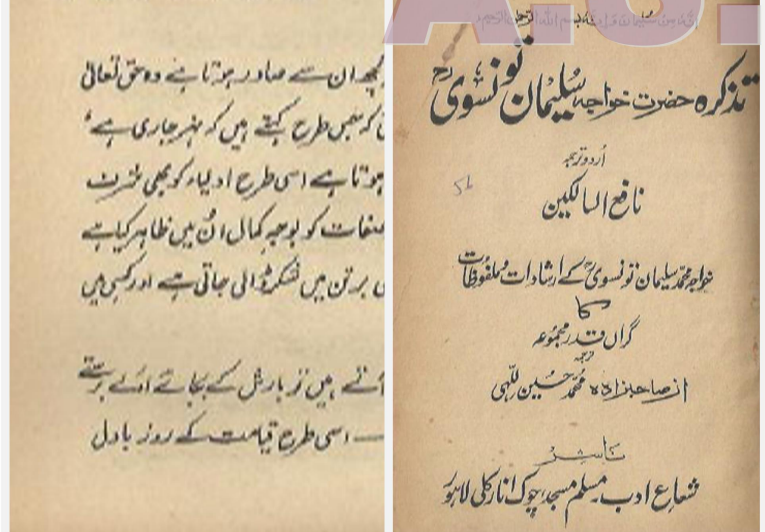 تذکرہ حضرت خواجہ سلیمان تونسوی رح
اُردو ترجمہ
نافع السالکین
خواجہ محمد سلیمان تونسوی رح کے ارشادات و ملفوظات
کا
گراں قدر مجموعہ
ترجمہ
از صاحبزادہ محمد حسین للہی
ناشر
شعاع ادب۔ مسلم مسجد، چوک انارکلی لاہور
کچھ ان سے صادر ہوتا ہے وہ حق تعالیٰ
کو جس طرح کہتے ہیں کہ نہر جاری ہے،
ہوتا ہے اسی طرح اولیاء کو بھی شرف
صفات کو بوجہ کمال اُن میں ظاہر کیا ہے
برتن میں شکر ڈالی جاتی ہے اور کسی میں
آتے ہیں تو بارش کے بجائے اولے برستے
اسی طرح قیامت کے روز بادل